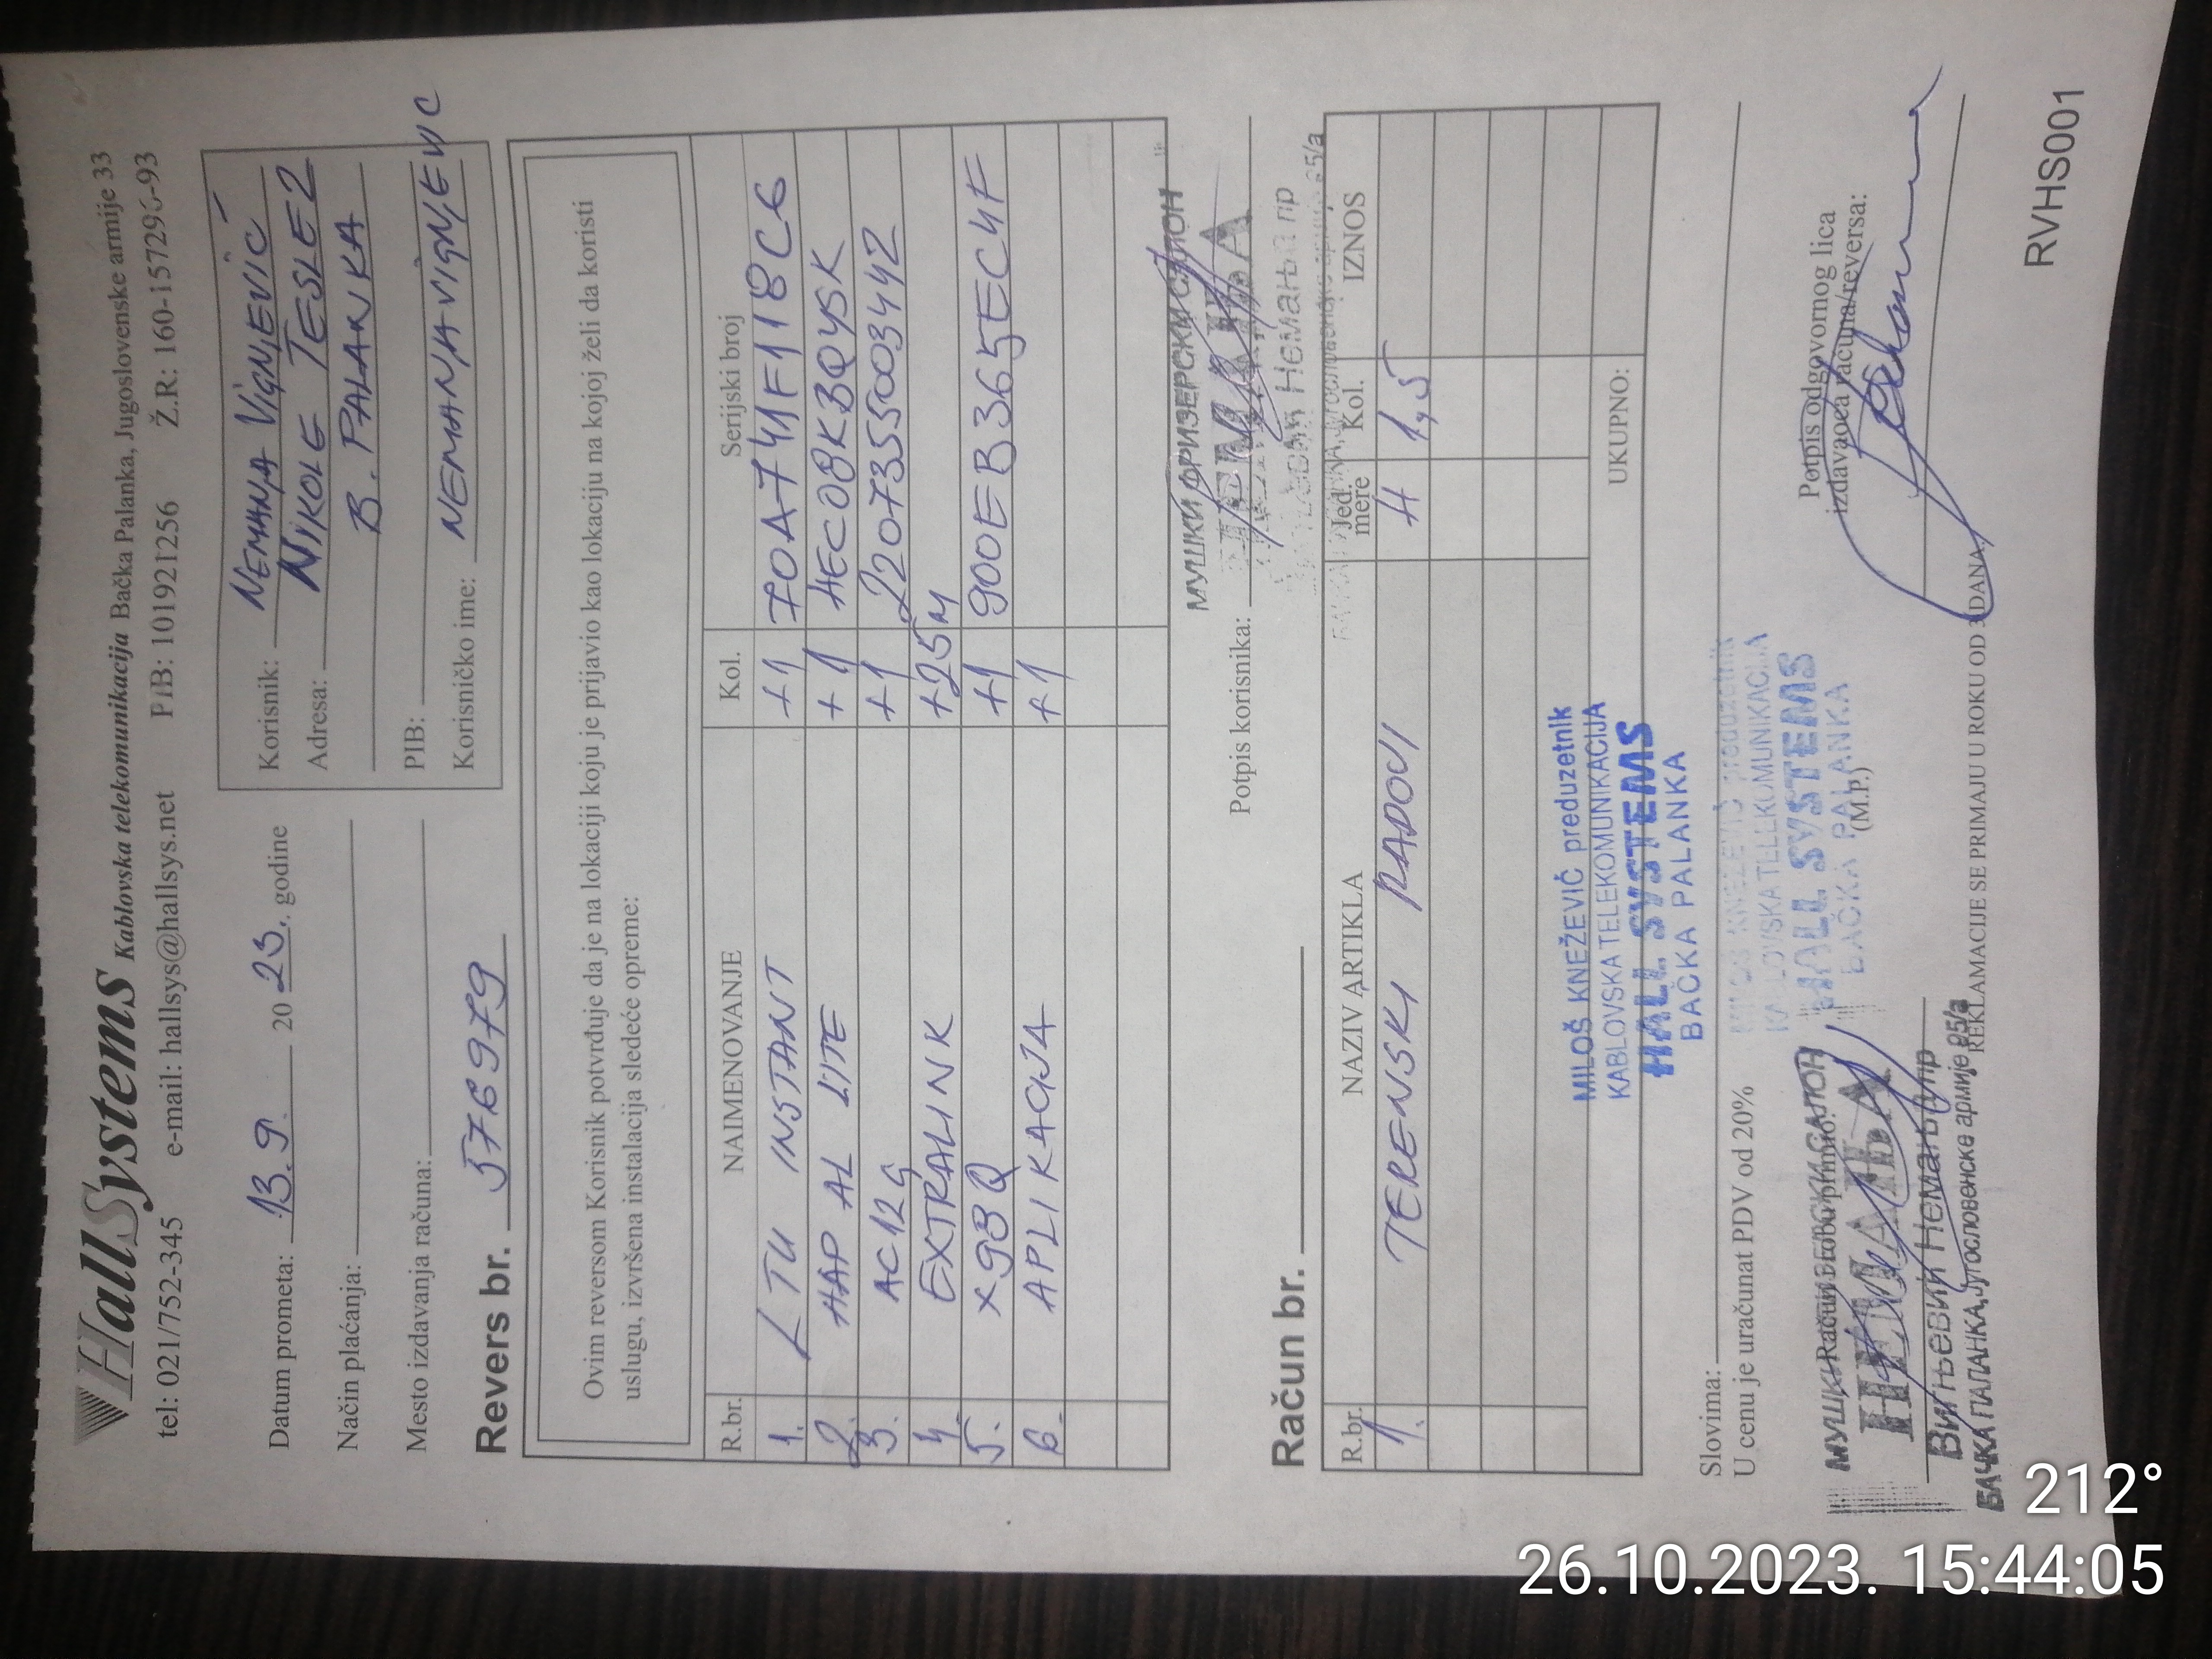 HallSystems Kablovska telekomunikacija Bačka Palanka, Jugoslovenske armije 33
tel: 021/752-345 e-mail: hallsys@hallsys.net PIB: 101921256 Ž.R: 160-157296-93
Datum prometa: 13.9. 20 23. godine
Način plaćanja:
Mesto izdavanja računa:
Korisnik: NEMANJA VIGNJEVIĆ
Adresa: NIKOLE TESLE 2
B. PALANKA
PIB:
Korisničko ime: NEMANJAVIGNJEVIC
Revers br. 576979
Ovim reversom Korisnik potvrđuje da je na lokaciji koju je prijavio kao lokaciju na kojoj želi da koristi
uslugu, izvršena instalacija sledeće opreme:
R.br. NAIMENOVANJE Kol. Serijski broj
1. LTU INSTANT +1 70A741F118C6
2. HAP AL LITE +1 HEC08KBQYSK
3. AC12G +1 2207355003442
4. EXTRALINK +25m
5. X9BQ +1 900EB365EC4F
6. APLIKACIJA +1
Potpis korisnika:
МУШКИ ФРИЗЕРСКИ САЛОН
НЕМАЊА
Немања пр
Račun br.
R.br. NAZIV ARTIKLA Jed. mere Kol. IZNOS
1. TERENSKI RADOVI H 1,5
UKUPNO:
MILOŠ KNEŽEVIĆ preduzetnik
KABLOVSKA TELEKOMUNIKACIJA
HALL SYSTEMS
BAČKA PALANKA
Slovima:
U cenu je uračunat PDV od 20%
MILOŠ KNEŽEVIĆ preduzetnik
KABLOVSKA TELEKOMUNIKACIJA
HALL SYSTEMS
BAČKA PALANKA
(M.P.)
Račun i robu primio:
МУШКИ ФРИЗЕРСКИ САЛОН
НЕМАЊА
Вигњевић Немања пр
БАЧКА ПАЛАНКА, Југословенске армије 95/а
Potpis odgovornog lica
izdavaoca računa/reversa:
REKLAMACIJE SE PRIMAJU U ROKU OD 3 DANA.
RVHS001
212°
26.10.2023. 15:44:05